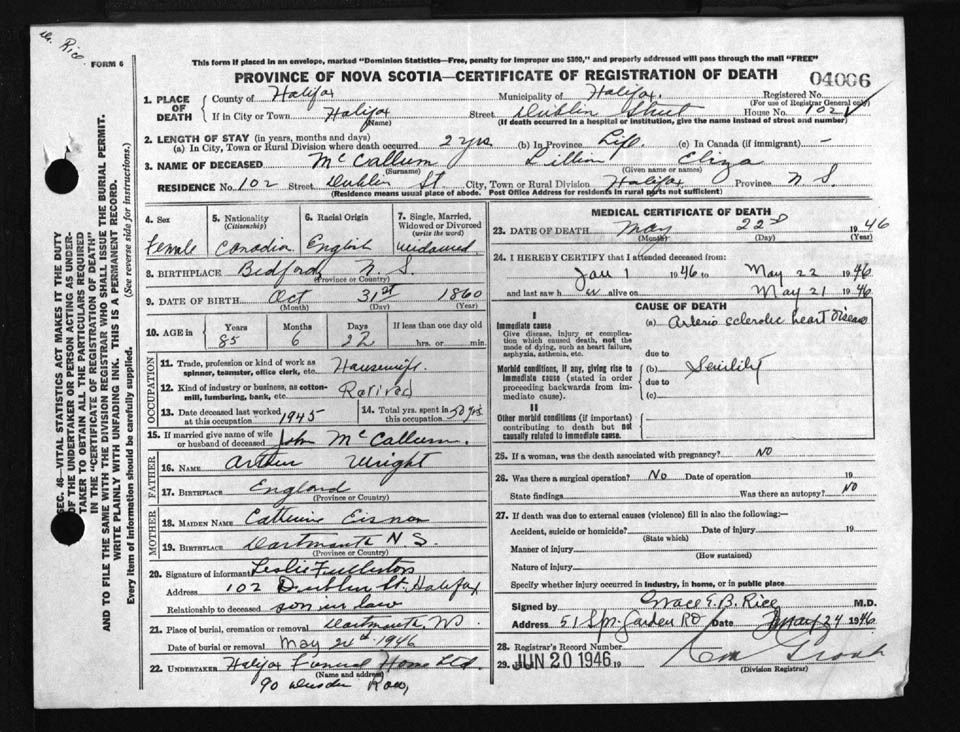 Dr. Rice
FORM 6
This form if placed in an envelope, marked "Dominion Statistics—Free, penalty for improper use $300," and properly addressed will pass through the mail "FREE"
PROVINCE OF NOVA SCOTIA—CERTIFICATE OF REGISTRATION OF DEATH
04006
1. PLACE OF DEATH { County of Halifax Municipality of Halifax. Registered No.
(For use of Registrar General only)
If in City or Town Halifax Street Dublin Street House No. 102
(Name) (If death occurred in a hospital or institution, give the name instead of street and number)
2. LENGTH OF STAY (in years, months and days)
(a) In City, Town or Rural Division where death occurred 2 yrs (b) In Province Life. (c) In Canada (if immigrant) —
3. NAME OF DECEASED McCallum Lillian Eliza
(Surname) (Given name or names)
RESIDENCE No. 102 Street Dublin St. City, Town or Rural Division Halifax Province N S.
(Residence means usual place of abode. Post Office Address for residents in rural parts not sufficient)
SEC. 46—VITAL STATISTICS ACT MAKES IT THE DUTY
OF THE UNDERTAKER OR PERSON ACTING AS UNDER-
TAKER TO OBTAIN ALL THE PARTICULARS REQUIRED
IN THE "CERTIFICATE OF REGISTRATION OF DEATH"
AND TO FILE THE SAME WITH THE DIVISION REGISTRAR WHO SHALL ISSUE THE BURIAL PERMIT.
WRITE PLAINLY WITH UNFADING INK. THIS IS A PERMANENT RECORD.
Every item of information should be carefully supplied. (See reverse side for instructions.)
4. Sex 5. Nationality (Citizenship) 6. Racial Origin 7. Single, Married, Widowed or Divorced (write the word)
Female Canadian English widowed
8. BIRTHPLACE Bedford N. S.
(Province or Country)
9. DATE OF BIRTH Oct 31st 1860
(Month) (Day) (Year)
10. AGE in Years Months Days If less than one day old
85 6 22 hrs. or min.
OCCUPATION
11. Trade, profession or kind of work as spinner, teamster, office clerk, etc. Housewife.
12. Kind of industry or business, as cotton-mill, lumbering, bank, etc. Retired
13. Date deceased last worked at this occupation 1945 14. Total yrs. spent in this occupation 50 yrs.
15. If married give name of wife or husband of deceased John McCallum.
FATHER
16. NAME Arthur Wright
17. BIRTHPLACE England
(Province or Country)
MOTHER
18. MAIDEN NAME Catherine Eisnor
19. BIRTHPLACE Dartmouth N S.
(Province or Country)
20. Signature of informant Leslie
Address 102 Dublin St. Halifax
Relationship to deceased son in law
21. Place of burial, cremation or removal Dartmouth, NS
Date of burial or removal May 24th 1946
22. UNDERTAKER Halifax Funeral Home Ltd.
(Name and address)
90 Row,
MEDICAL CERTIFICATE OF DEATH
23. DATE OF DEATH May 22nd 1946
(Month) (Day) (Year)
24. I HEREBY CERTIFY that I attended deceased from:
Jan 1 1946 to May 22 1946
and last saw h er alive on May 21 1946
CAUSE OF DEATH
I
Immediate cause
Give disease, injury or complication which caused death, not the mode of dying, such as heart failure, asphyxia, asthenia, etc.
(a) Arterio sclerotic heart disease
due to
Morbid conditions, if any, giving rise to immediate cause (stated in order proceeding backwards from immediate cause).
(b) Senility
due to
(c)
II
Other morbid conditions (if important) contributing to death but not causally related to immediate cause.
25. If a woman, was the death associated with pregnancy? NO
26. Was there a surgical operation? No Date of operation 19
State findings Was there an autopsy? NO
27. If death was due to external causes (violence) fill in also the following:—
Accident, suicide or homicide? Date of injury 19
(State which)
Manner of injury
(How sustained)
Nature of injury
Specify whether injury occurred in industry, in home, or in public place
Signed by Grace E. B. Rice M.D.
Address 51 Spr. Garden RD Date May 24 1946
28. Registrar's Record Number
29. JUN 20 1946 19
(Division Registrar)